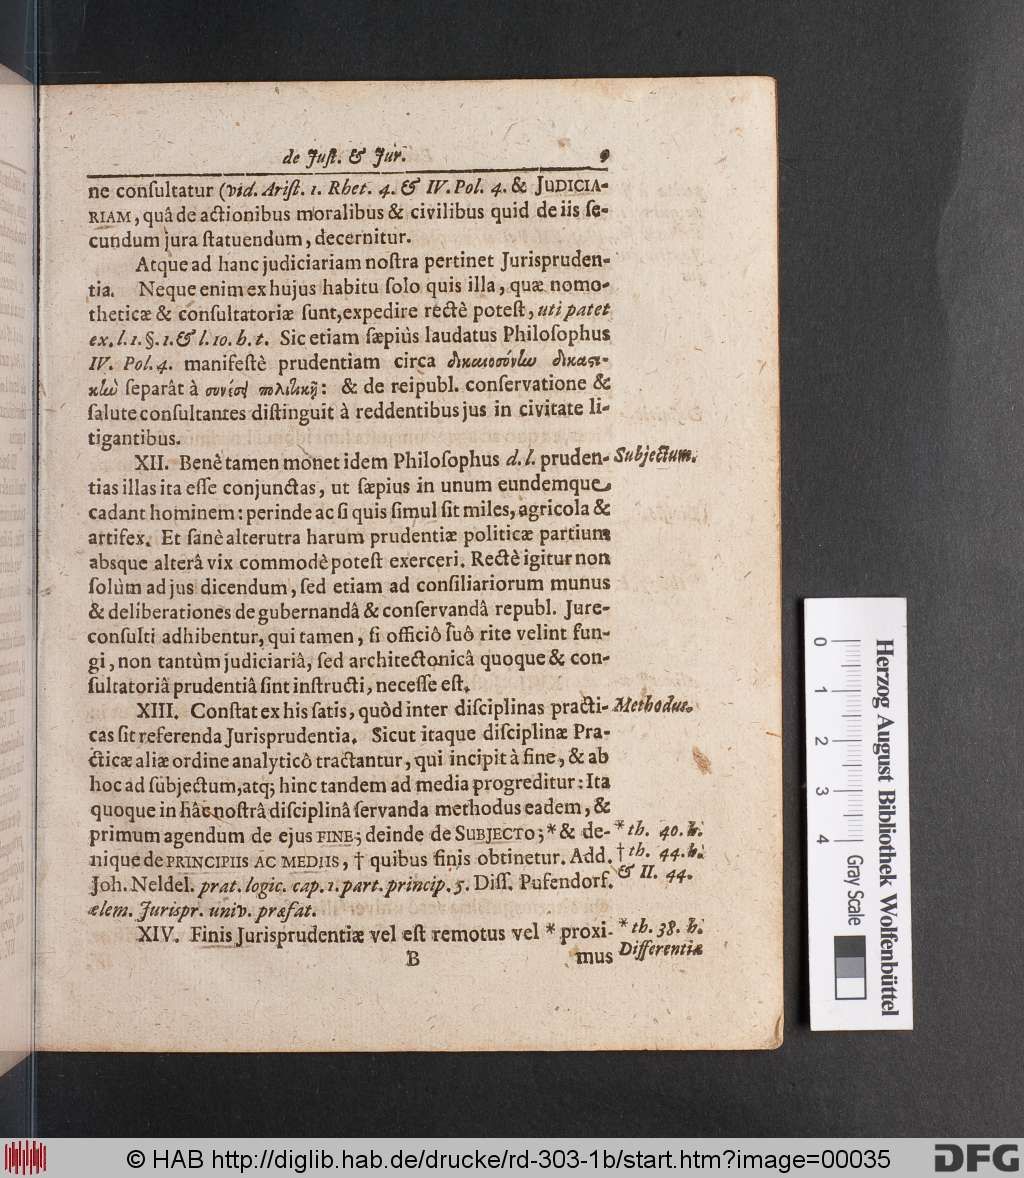 de Juſt. & Jur. 9
ne conſultatur (vid. Ariſt. 1. Rhet. 4. & IV. Pol. 4. & JUDICIA-
RIAM, quâ de actionibus moralibus & civilibus quid de iis ſe-
cundum jura ſtatuendum, decernitur.
Atque ad hanc judiciariam noſtra pertinet Jurispruden-
tia. Neque enim ex hujus habitu ſolo quis illa, quæ nomo-
theticæ & conſultatoriæ ſunt, expedire rectè poteſt, uti patet
ex. l. 1. §. 1. & l. 10. h. t. Sic etiam ſæpiùs laudatus Philoſophus
IV. Pol. 4. manifeſtè prudentiam circa δικαιοσύνην δικαϛι-
κὴν ſeparât à συνέσει πολιτικῇ: & de reipubl. conſervatione &
ſalute conſultantes diſtinguit à reddentibus jus in civitate li-
tigantibus.
XII. Benè tamen monet idem Philoſophus d. l. pruden-
Subjectum.
tias illas ita eſſe conjunctas, ut ſæpius in unum eundemque
cadant hominem: perinde ac ſi quis ſimul ſit miles, agricola &
artifex. Et ſanè alterutra harum prudentiæ politicæ partium
absque alterâ vix commodè poteſt exerceri. Rectè igitur non
ſolùm ad jus dicendum, ſed etiam ad conſiliariorum munus
& deliberationes de gubernandâ & conſervandâ republ. Jure-
conſulti adhibentur, qui tamen, ſi officiô ſuô rite velint fun-
gi, non tantùm judiciariâ, ſed architectonicâ quoque & con-
ſultatoriâ prudentiâ ſint inſtructi, neceſſe eſt.
XIII. Conſtat ex his ſatis, quòd inter diſciplinas practi-
Methodus.
cas ſit referenda Jurisprudentia. Sicut itaque diſciplinæ Pra-
cticæ aliæ ordine analyticô tractantur, qui incipit à fine, & ab
hoc ad ſubjectum, atq; hinc tandem ad media progreditur: Ita
quoque in hâc noſtrâ diſciplinâ ſervanda methodus eadem, &
primum agendum de ejus FINE; deinde de SUBJECTO; * & de-
* th. 40. h.
nique de PRINCIPIIS AC MEDIIS, † quibus finis obtinetur. Add.
† th. 44. h.
Joh. Neldel. prat. logic. cap. 1. part. princip. 5. Diſſ. Pufendorf.
& II. 44.
ælem. Jurispr. univ. præfat.
XIV. Finis Jurisprudentiæ vel eſt remotus vel * proxi-
* th. 38. h.
Differentiæ
B mus
0 1 2 3 4
Herzog August Bibliothek Wolfenbüttel
Gray Scale
© HAB http://diglib.hab.de/drucke/rd-303-1b/start.htm?image=00035
DFG